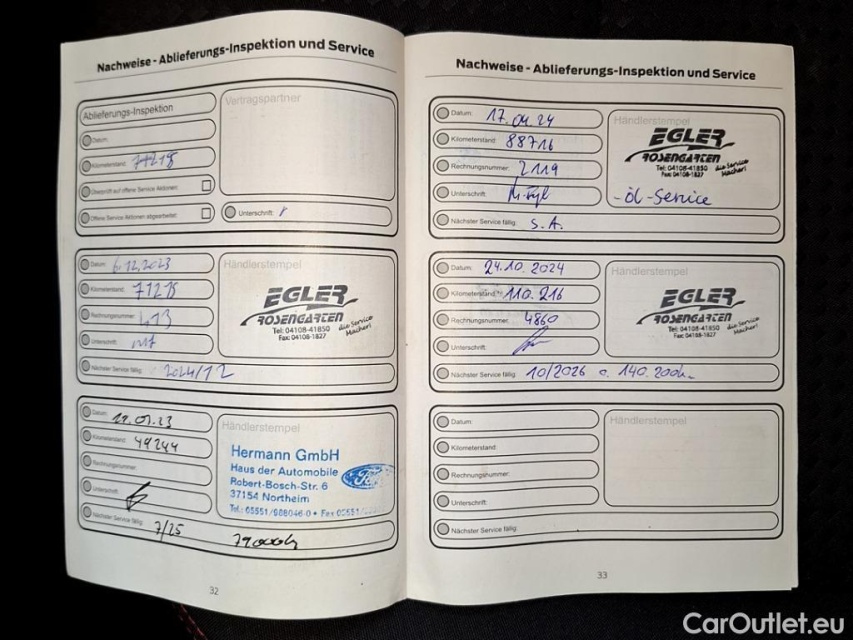 Nachweise - Ablieferungs-Inspektion und Service
Ablieferungs-Inspektion
Datum:
Kilometerstand: 77218
Überprüft auf offene Service Aktionen:
Offene Service-Aktionen abgearbeitet:
Vertragspartner
Unterschrift:
Datum: 6.12.2023
Kilometerstand: 71215
Rechnungsnummer:
Unterschrift:
Nächster Service fällig: 2024/12
Händlerstempel
EGLER
ROSENGARTEN
Tel: 04108-41850
Fax: 04108-1827
die Service
Macher!
Datum: 07.23
Kilometerstand: 49244
Rechnungsnummer:
Unterschrift:
Nächster Service fällig: 7/25 79000h
Händlerstempel
Hermann GmbH
Haus der Automobile
Robert-Bosch-Str. 6
37154 Northeim
Tel.: 05551/988046-0 • Fax 05551/
Ford
32
Nachweise - Ablieferungs-Inspektion und Service
Datum: 17.04.24
Kilometerstand: 88716
Rechnungsnummer: 2119
Unterschrift:
Nächster Service fällig: S.A.
Händlerstempel
EGLER
ROSENGARTEN
Tel: 04108-41850
Fax: 04108-1827
die Service
Macher!
-Öl-Service
Datum: 24.10.2024
Kilometerstand: 110.216
Rechnungsnummer: 4860
Unterschrift:
Nächster Service fällig: 10/2026 o. 140.200
Händlerstempel
EGLER
ROSENGARTEN
Tel: 04108-41850
Fax: 04108-1827
die Service
Macher!
Datum:
Kilometerstand:
Rechnungsnummer:
Unterschrift:
Nächster Service fällig:
Händlerstempel
33
CarOutlet.eu